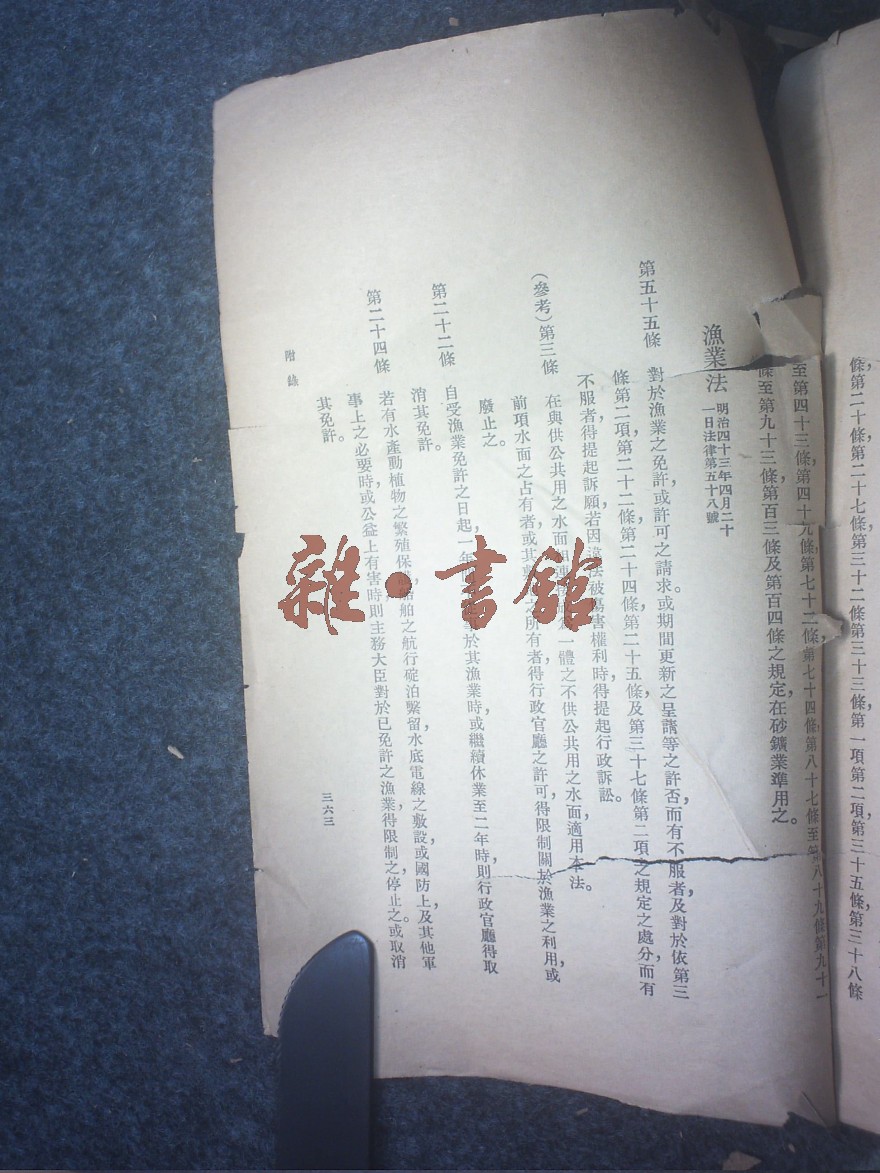 條,第二十條第二十七條第三十二條第三十三條,第一項第二項第三十五條第三十八條
至第四十三條,第四十九條,第七十二條,第七十四條,第八十七條至第八十九條第九十一
條至第九十三條第百三條及第百四條之規定,在砂鑛業準用之。
漁業法 明治四十三年四月二十
一日法律第五十八號
第五十五條 對於漁業之免許或許可之請求。或期間更新之呈請等之許否,而有不服者,及對於依第三
條第二項第二十二條第二十四條第二十五條及第三十七條第二項之規定之處分而有
不服者,得提起訴願,若因違法被傷害權利時,得提起行政訴訟。
(參考)第三條 在與供公共用之水面 一體之不供公共用之水面,適用本法。
前項水面之占有者,或其 之所有者,得行政官廳之許可,得限制關於漁業之利用,或
廢止之。
第二十二條 自受漁業免許之日起,一年 於其漁業時,或繼續休業至二年時,則行政官廳得取
消其免許。
第二十四條 若有水產動植物之繁殖保 船舶之航行碇泊繫留,水底電線之敷設,或國防上,及其他軍
事上之必要時,或公益上有害時,則主務大臣對於已免許之漁業,得限制之,停止之。或取消
其免許。
附錄
三六三
雜·書館